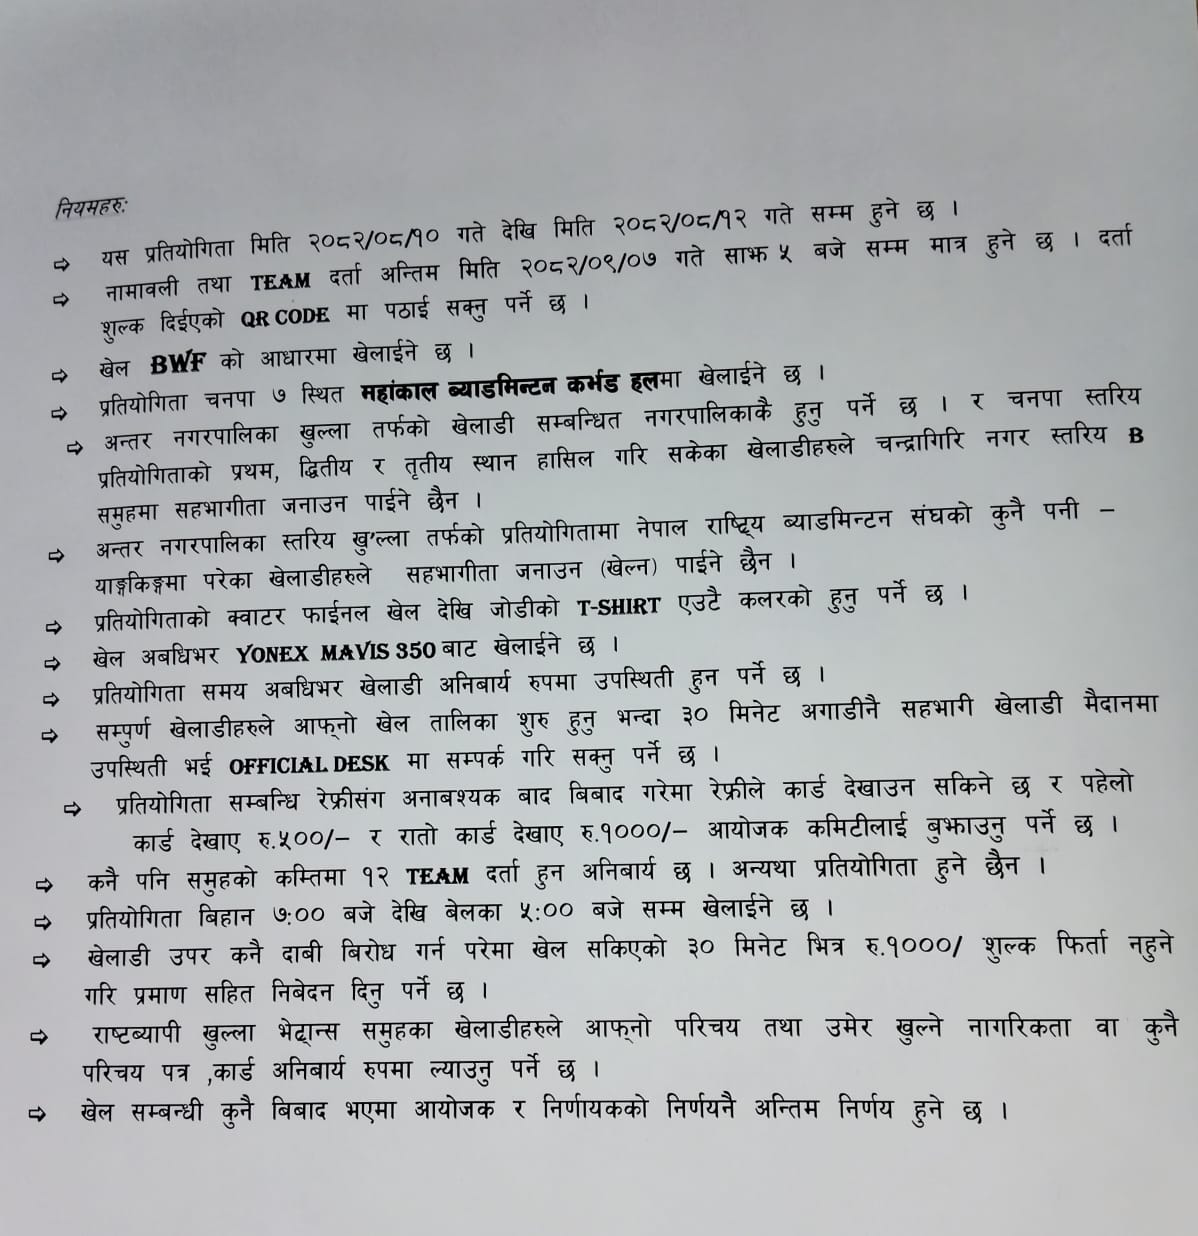 नियमहरु:
⇨ यस प्रतियोगिता मिति २०८२/०८/१० गते देखि मिति २०८२/०८/१२ गते सम्म हुने छ ।
⇨ नामावली तथा TEAM दर्ता अन्तिम मिति २०८२/०९/०७ गते साझ ५ बजे सम्म मात्र हुने छ । दर्ता
शुल्क दिईएको QR CODE मा पठाई सक्नु पर्ने छ ।
⇨ खेल BWF को आधारमा खेलाईने छ ।
⇨ प्रतियोगिता चनपा ७ स्थित महांकाल ब्याडमिन्टन कर्भड हलमा खेलाईने छ ।
⇨ अन्तर नगरपालिका खुल्ला तर्फको खेलाडी सम्बन्धित नगरपालिकाकै हुनु पर्ने छ । र चनपा स्तरिय
प्रतियोगिताको प्रथम, द्धितीय र तृतीय स्थान हासिल गरि सकेका खेलाडीहरुले चन्द्रागिरि नगर स्तरिय B
समुहमा सहभागीता जनाउन पाईने छैन ।
⇨ अन्तर नगरपालिका स्तरिय खु'ल्ला तर्फको प्रतियोगितामा नेपाल राष्ट्रिय ब्याडमिन्टन संघको कुनै पनी –
याङ्गकिङ्गमा परेका खेलाडीहरुले सहभागीता जनाउन (खेल्न) पाईने छैन ।
⇨ प्रतियोगिताको क्वाटर फाईनल खेल देखि जोडीको T-SHIRT एउटै कलरको हुनु पर्ने छ ।
⇨ खेल अबधिभर YONEX MAVIS 350 बाट खेलाईने छ ।
⇨ प्रतियोगिता समय अबधिभर खेलाडी अनिबार्य रुपमा उपस्थिती हुन पर्ने छ ।
⇨ सम्पुर्ण खेलाडीहरुले आफ्नो खेल तालिका शुरु हुनु भन्दा ३० मिनेट अगाडीनै सहभागी खेलाडी मैदानमा
उपस्थिती भई OFFICIAL DESK मा सम्पर्क गरि सक्नु पर्ने छ ।
⇨ प्रतियोगिता सम्बन्धि रेफ्रीसंग अनाबश्यक बाद बिबाद गरेमा रेफ्रीले कार्ड देखाउन सकिने छ र पहेलो
कार्ड देखाए रु.५००/– र रातो कार्ड देखाए रु.१०००/– आयोजक कमिटीलाई बुझाउनु पर्ने छ ।
⇨ कनै पनि समुहको कम्तिमा १२ TEAM दर्ता हुन अनिबार्य छ । अन्यथा प्रतियोगिता हुने छैन ।
⇨ प्रतियोगिता बिहान ७:०० बजे देखि बेलका ५:०० बजे सम्म खेलाईने छ ।
⇨ खेलाडी उपर कनै दाबी बिरोध गर्न परेमा खेल सकिएको ३० मिनेट भित्र रु.१०००/ शुल्क फिर्ता नहुने
गरि प्रमाण सहित निबेदन दिनु पर्ने छ ।
⇨ राष्टब्यापी खुल्ला भेट्रान्स समुहका खेलाडीहरुले आफ्नो परिचय तथा उमेर खुल्ने नागरिकता वा कुनै
परिचय पत्र ,कार्ड अनिबार्य रुपमा ल्याउनु पर्ने छ ।
⇨ खेल सम्बन्धी कुनै बिबाद भएमा आयोजक र निर्णायकको निर्णयनै अन्तिम निर्णय हुने छ ।